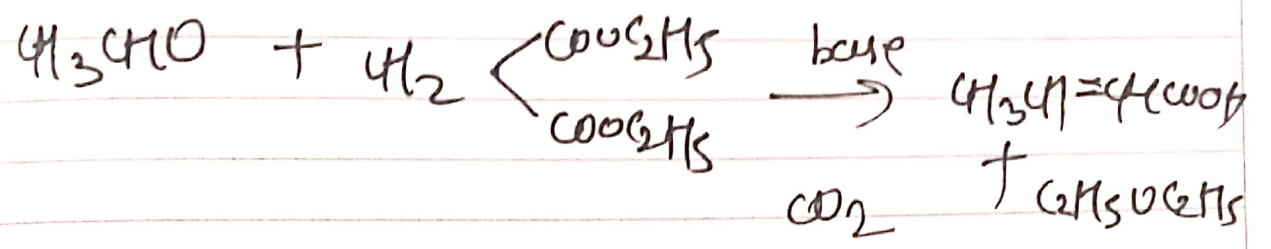 CH3CHO + CH2 < COOC2H5 COOC2H5 base → CH3CH=CHCOOH
CO2 + C2H5OC2H5